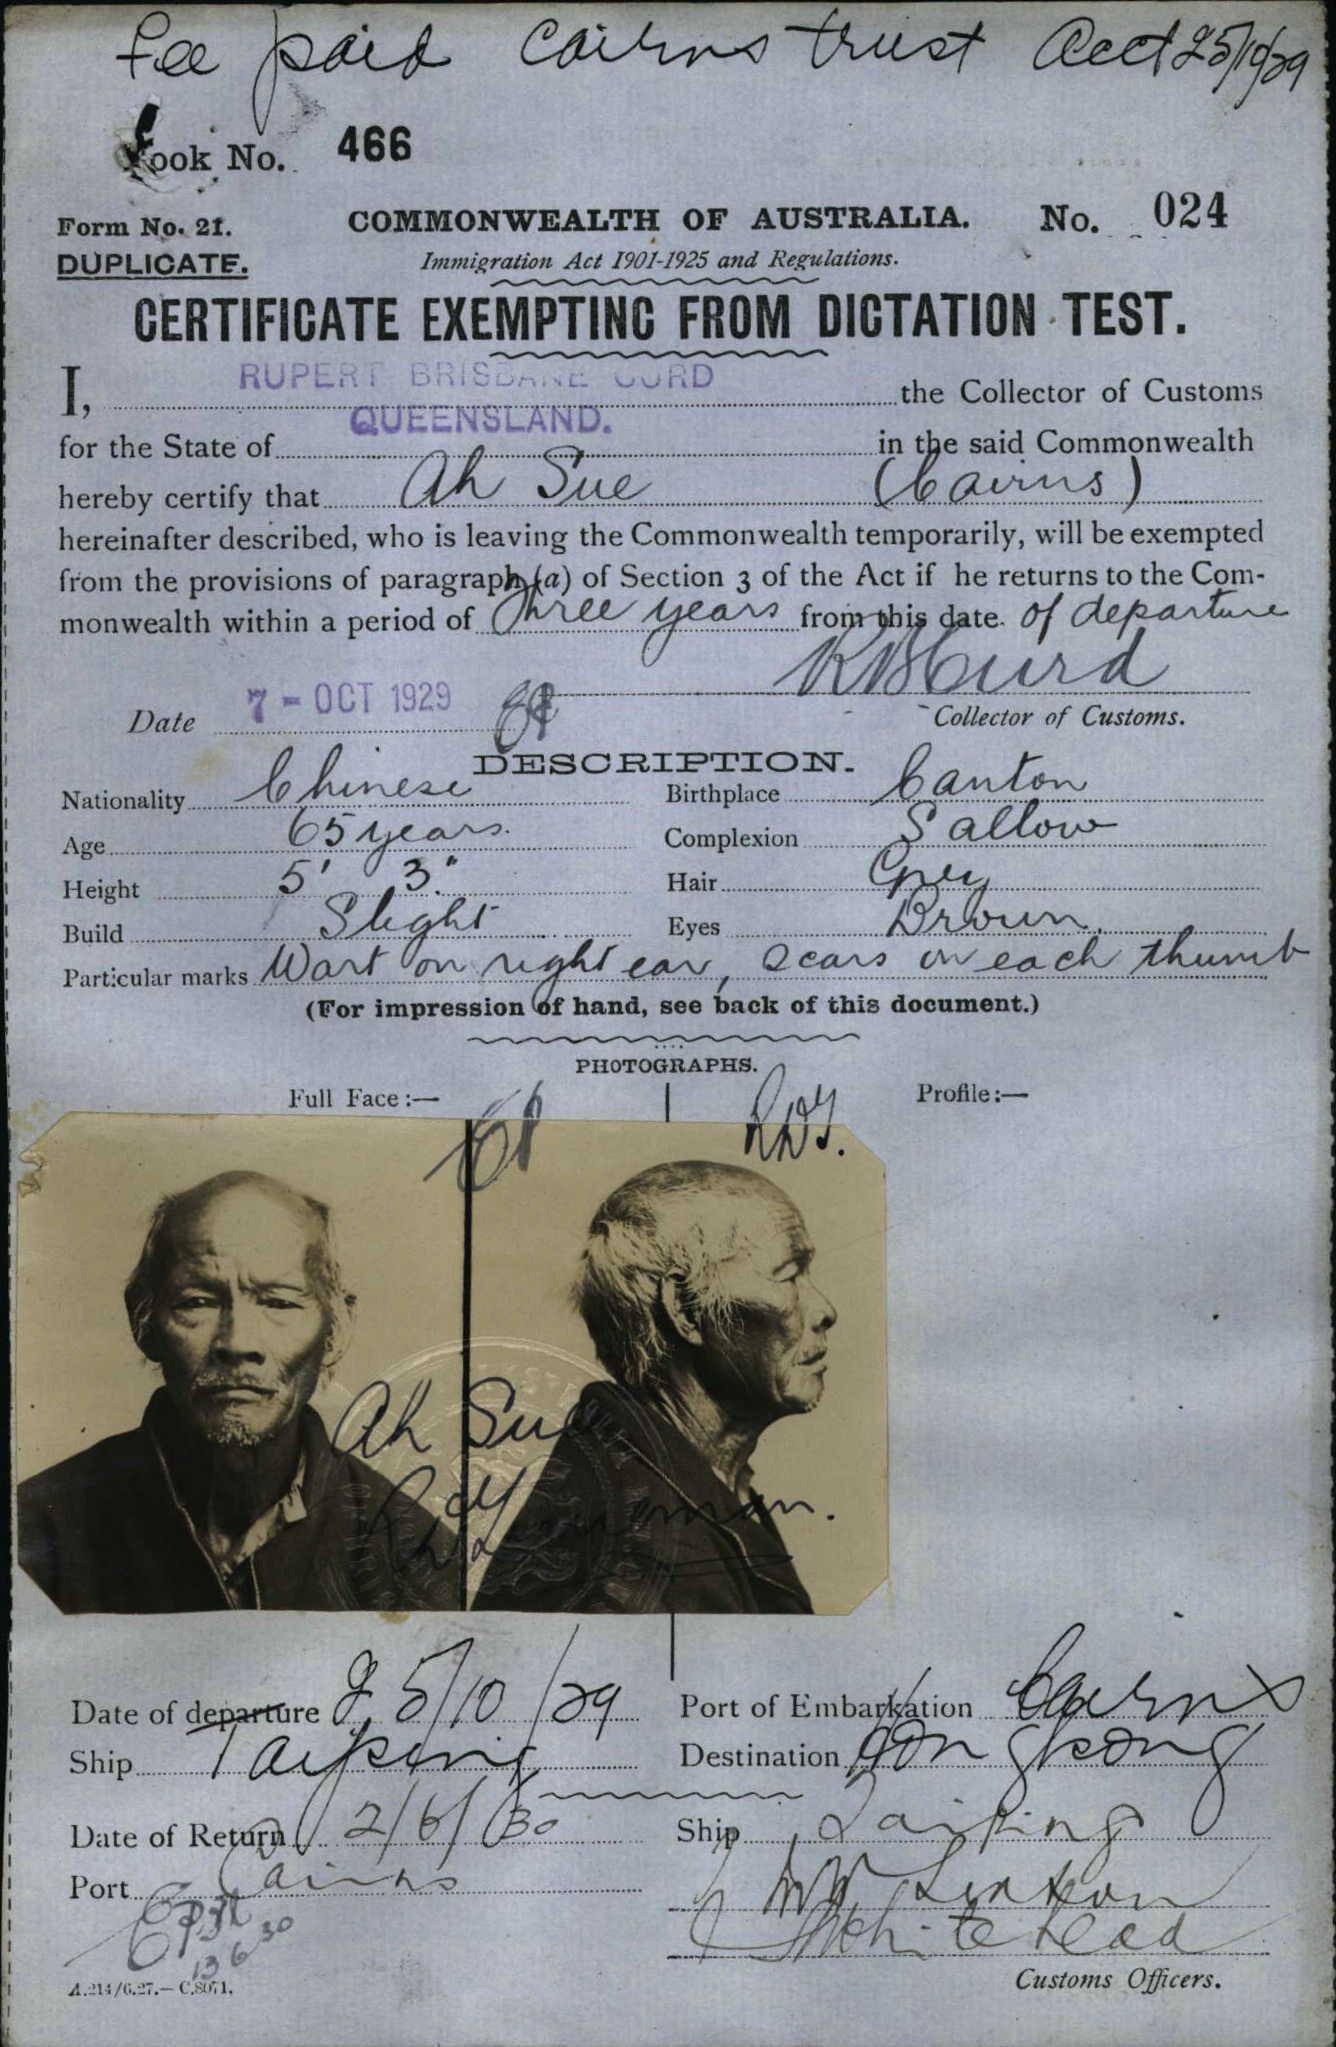 Fee paid Cairns trust Acct 25/10/29
Book No. 466
Form No. 21. COMMONWEALTH OF AUSTRALIA. No. 024
DUPLICATE. Immigration Act 1901-1925 and Regulations.
CERTIFICATE EXEMPTING FROM DICTATION TEST.
I, RUPERT BRISBANE CURD the Collector of Customs
for the State of QUEENSLAND. in the said Commonwealth
hereby certify that Ah Sue (Cairns)
hereinafter described, who is leaving the Commonwealth temporarily, will be exempted
from the provisions of paragraph (a) of Section 3 of the Act if he returns to the Com-
monwealth within a period of Three years from this date of departure
RBCurd
Date 7 - OCT 1929 Collector of Customs.
DESCRIPTION.
Nationality Chinese Birthplace Canton
Age 65 years. Complexion Sallow
Height 5' 3." Hair Grey
Build Slight Eyes Brown.
Particular marks Wart on right ear, scars on each thumb
(For impression of hand, see back of this document.)
PHOTOGRAPHS.
Full Face:— Profile:—
Ah Sue
Date of departure 25/10/29 Port of Embarkation Cairns
Ship Taiping Destination Hongkong
Date of Return 2/6/30 Ship Taiping
Port Cairns
13 6 30
Whitehead
A.214/6.27.—C.8071. Customs Officers.